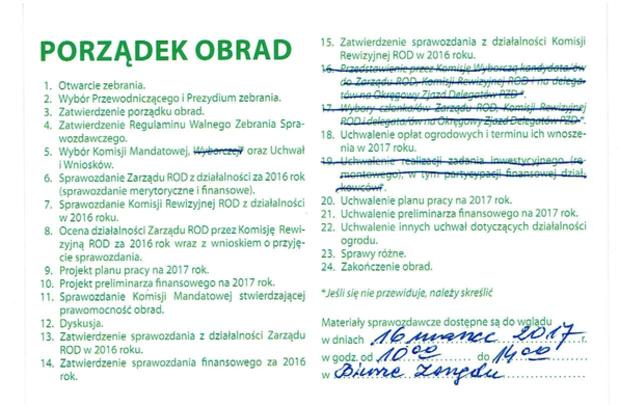 PORZĄDEK OBRAD
1. Otwarcie zebrania.
2. Wybór Przewodniczącego i Prezydium zebrania.
3. Zatwierdzenie porządku obrad.
4. Zatwierdzenie Regulaminu Walnego Zebrania Spra-
wozdawczego.
5. Wybór Komisji Mandatowej, Wyborczej* oraz Uchwał
i Wniosków.
6. Sprawozdanie Zarządu ROD z działalności za 2016 rok
(sprawozdanie merytoryczne i finansowe).
7. Sprawozdanie Komisji Rewizyjnej ROD z działalności
w 2016 roku.
8. Ocena działalności Zarządu ROD przez Komisję Rewi-
zyjną ROD za 2016 rok wraz z wnioskiem o przyję-
cie sprawozdania.
9. Projekt planu pracy na 2017 rok.
10. Projekt preliminarza finansowego na 2017 rok.
11. Sprawozdanie Komisji Mandatowej stwierdzającej
prawomocność obrad.
12. Dyskusja.
13. Zatwierdzenie sprawozdania z działalności Zarządu
ROD w 2016 roku.
14. Zatwierdzenie sprawozdania finansowego za 2016
rok.
15. Zatwierdzenie sprawozdania z działalności Komisji
Rewizyjnej ROD w 2016 roku.
16. Przedstawienie przez Komisję Wyborczą kandydatów
do Zarządu ROD, Komisji Rewizyjnej ROD i na delega-
tów na Okręgowy Zjazd Delegatów PZD*.
17. Wybory członków: Zarządu ROD, Komisji Rewizyjnej
ROD i delegatów na Okręgowy Zjazd Delegatów PZD*.
18. Uchwalenie opłat ogrodowych i terminu ich wnosze-
nia w 2017 roku.
19. Uchwalenie realizacji zadania inwestycyjnego (re-
montowego), w tym partycypacji finansowej dział-
kowców*.
20. Uchwalenie planu pracy na 2017 rok.
21. Uchwalenie preliminarza finansowego na 2017 rok.
22. Uchwalenie innych uchwał dotyczących działalności
ogrodu.
23. Sprawy różne.
24. Zakończenie obrad.
*Jeśli się nie przewiduje, należy skreślić
Materiały sprawozdawcze dostępne są do wglądu
w dniach 16 marzec 2017 r.
w godz. od 10 00 do 14 00
w Biurze Zarządu